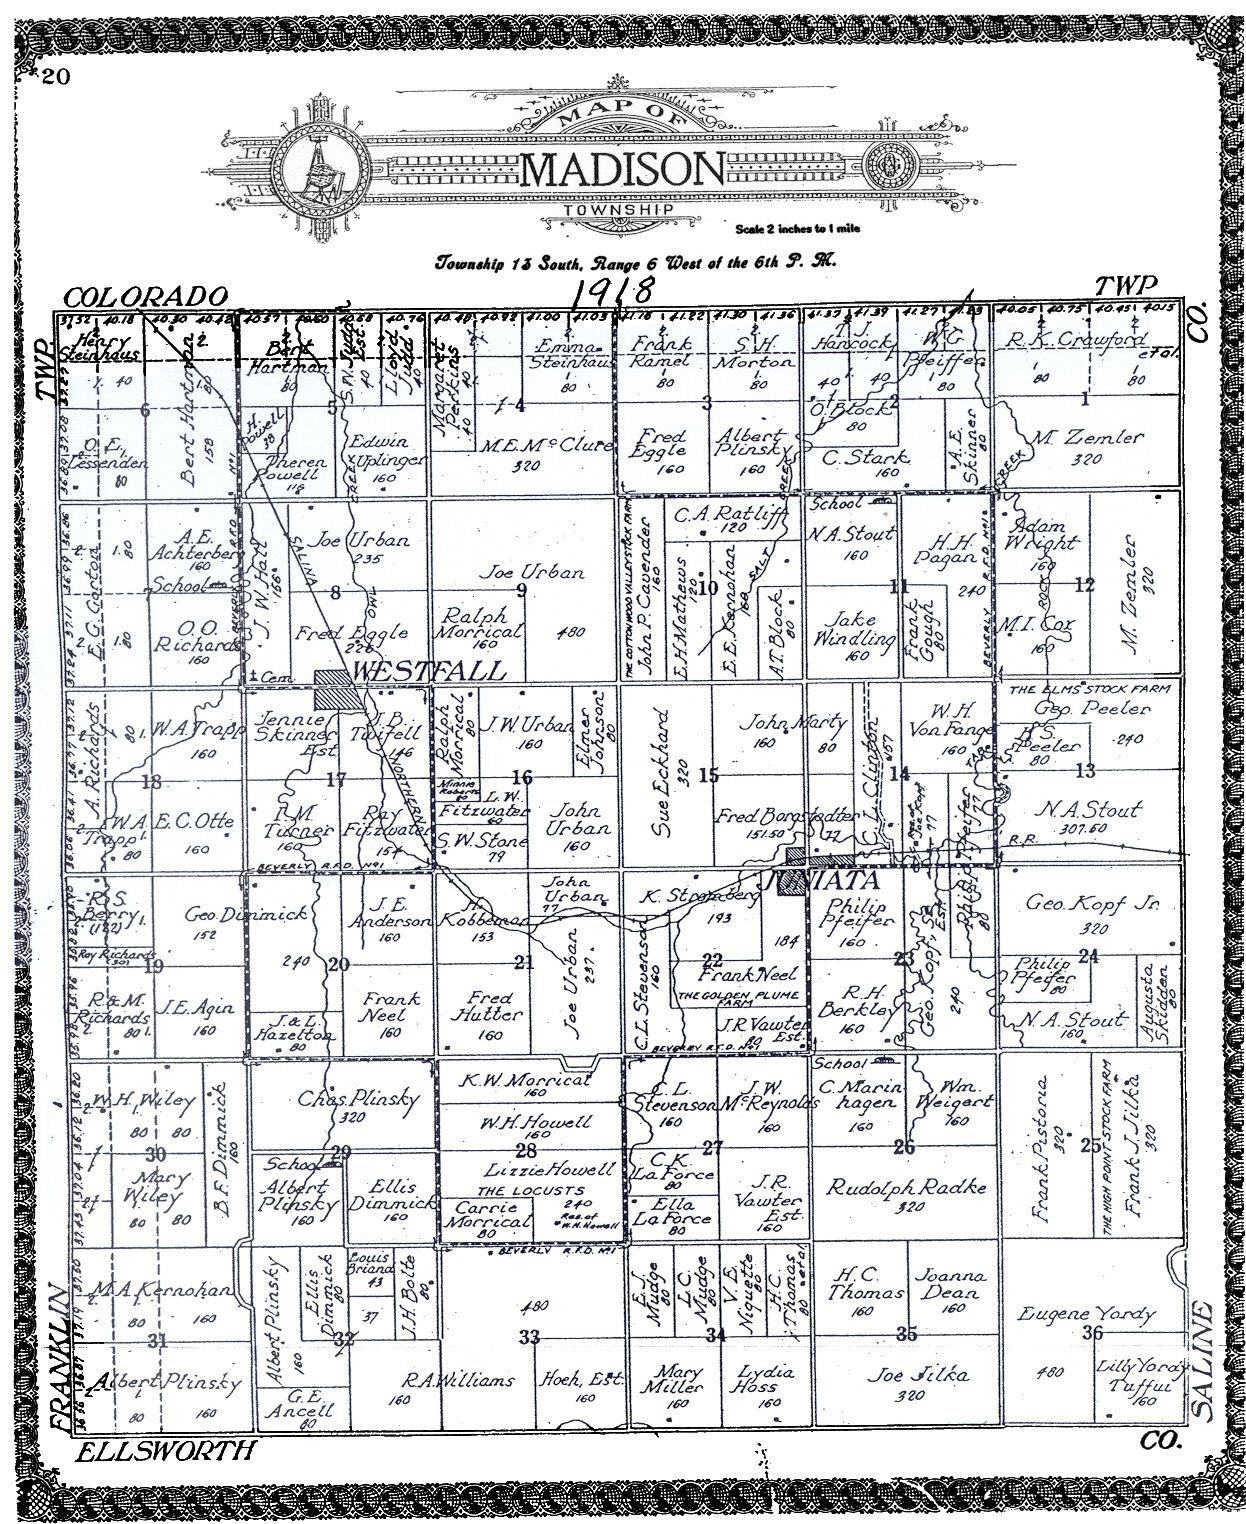 20
MAP OF
MADISON
TOWNSHIP
Scale 2 inches to 1 mile
Township 13 South, Range 6 West of the 6th P. M.
1918
COLORADO
TWP
TWP.
CO.
37.52 40.18 40.30 40.42 40.57 40.60 40.68 40.76
Henry
Steinhaus
40
Bert Hartman
158
6
O. E.
Lessenden
80
Bert
Hartman
80
S.W. Judd
Est
40
Lloyd
Judd
40
5
H.
Powell
38
Theren
Powell
118
Edwin
Uplinger
160
Margaret
Perkins
40
40
Emma
Steinhaus
80
4
M.E. McClure
320
Frank
Ramel
80
S.H.
Morton
80
3
Fred
Eggle
160
Albert
Plinsky
160
CREEK
T. J.
Hancock
40 40
W.G.
Pfeiffer
80
2
O. Block
80
C. Stark
160
A.E.
Skinner
80
R. K. Crawford
et al.
80
80
1
M. Zemler
320
CREEK
E. G. Gorton
80
80
A.E.
Achterberg
160
School
7
O.O.
Richards
160
J. W. Hall
156
SALINA
Joe Urban
235
8
OWL
CREEK
Fred Eggle
226
Cem.
WESTFALL
Joe Urban
9
Ralph
Morrical
160
480
THE COTTONWOOD VALLEY STOCK FARM
John P. Cavender
160
C.A. Ratliff
120
E.H. Mathews
120
10
E.E. Kernohan
160
SALT
A.T. Block
80
School
N.A. Stout
160
11
Jake
Windling
160
Frank
Gough
80
H.H.
Pagan
240
BEVERLY R.F.D. No 1
Adam
Wright
160
12
ROCK
M.I. Cox
160
M. Zemler
320
A. Richards
80
W.A. Trapp
160
18
W.A.
Trapp
80
E.C. Otte
160
Jennie
Skinner
Est
J.B.
Twifell
146
17
P.M.
Turner
160
Ray
Fitzwater
154
NORTHERN
BEVERLY R.F.D. No 1
Ralph
Morrical
80
J.W. Urban
160
Elmer
Johnson
80
16
Minnie
Roberts
L.W.
Fitzwater
S.W. Stone
79
John
Urban
160
Sue Eckhard
320
John Marty
160
80
15
Fred Borgstedter
151.50
77
JUNIATA
C.L. Clinton
157
W.H.
Von Fange
160
14
77
THE ELMS STOCK FARM
Geo. Peeler
H.S.
Peeler
80
240
13
N.A. Stout
307.60
R.R.
R.S.
Berry
(122)
Roy Richards
Geo. Dimmick
152
19
R & M.
Richards
80
J.E. Agin
160
240
J.E.
Anderson
160
20
J. & L.
Hazelton
80
Frank
Neel
160
H.
Kobbeman
153
John
Urban
77
21
Fred
Hutter
160
Joe Urban
237
K. Stromberg
193
184
C.L. Stevenson
160
22
Frank Neel
THE GOLDEN PLUME
FARM
J.R. Vawter
Est.
80
BEVERLY R.F.D. No 1
Philip
Pfeifer
160
23
R.H.
Berkley
160
Geo. Kopf, Sr.
Est.
240
Philip Pfeifer
80
Geo. Kopf Jr.
320
24
Philip
Pfeifer
80
N.A. Stout
160
Augusta
Skidden
80
W.H. Wiley
80 80
30
Mary
Wiley
80 80
B.F. Dimmick
160
Chas. Plinsky
320
29
School
Albert
Plinsky
160
Ellis
Dimmick
160
K.W. Morrical
160
W.H. Howell
160
28
Lizzie Howell
THE LOCUSTS
240
Res. of
W.H. Howell
Carrie
Morrical
80
BEVERLY R.F.D. No 1
C.L.
Stevenson
160
J.W.
McReynolds
160
27
C.K.
La Force
80
Ella
La Force
80
J.R.
Vawter
Est.
160
School
C. Marin
hagen
160
Wm.
Weigert
160
26
Rudolph Radke
320
Frank Pistoria
320
25
THE HIGH POINT STOCK FARM
Frank J. Jilka
320
M.A. Kernohan
80
160
31
Albert Plinsky
80
160
Albert Plinsky
160
Ellis
Dimmick
80
Louis
Briand
43
37
J.H. Bolte
80
32
G.E.
Ancell
80
480
33
R.A. Williams
160
Hoeh, Est.
160
E.J.
Mudge
80
L.C.
Mudge
80
V.E.
Niquette
80
H.C.
Thomas
et al
80
34
Mary
Miller
160
Lydia
Hoss
160
H.C.
Thomas
160
Joanna
Dean
160
35
Joe Jilka
320
Eugene Yordy
36
480
Lilly Yordy
Tuffui
160
FRANKLIN
SALINE
ELLSWORTH
CO.